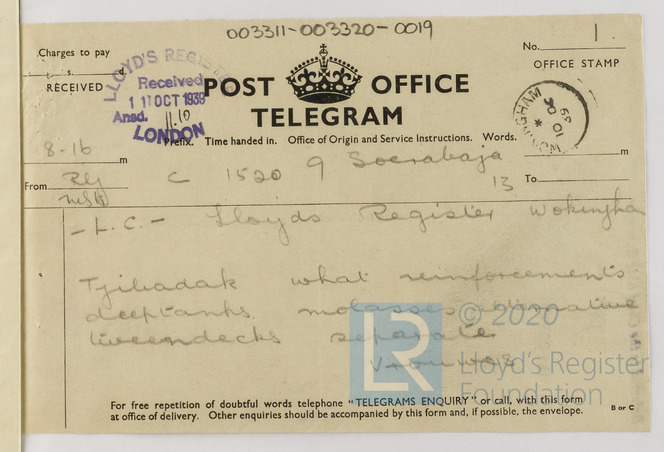 003311-003320-0019
Charges to pay
s. d.
RECEIVED
LLOYD'S REGISTER
Received
11 OCT 1939
Ansd. 11.10
LONDON
POST OFFICE
TELEGRAM
No. 1
OFFICE STAMP
WOKINGHAM
10 OC
39
Prefix. Time handed in. Office of Origin and Service Instructions. Words.
8-16 m
m
C 1520 9 Soerabaja 13
From
To
-L.C.- Lloyds Register Wokingham
Tjibadak what reinforcements
deeptanks molasses alternative
tweendecks separate
LR
© 2020
Lloyd's Register
Foundation
For free repetition of doubtful words telephone "TELEGRAMS ENQUIRY" or call, with this form
at office of delivery. Other enquiries should be accompanied by this form and, if possible, the envelope.
B or C